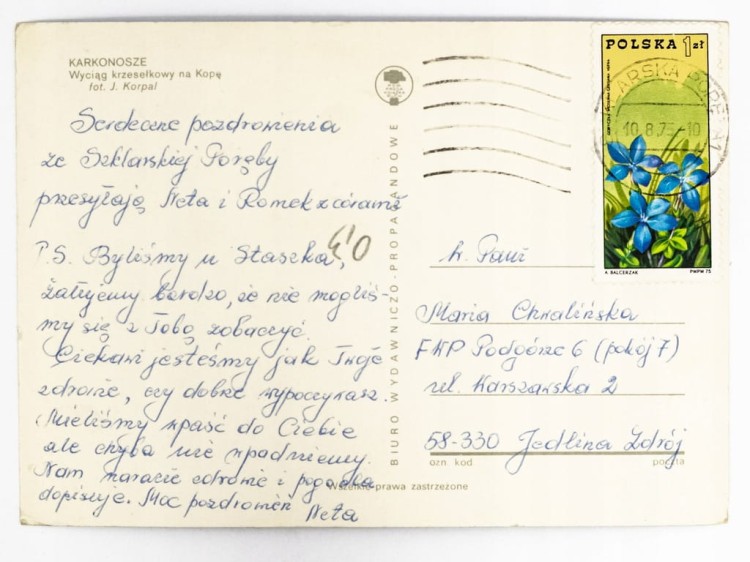 KARKONOSZE
Wyciąg krzesełkowy na Kopę
fot. J. Korpal
Serdeczne pozdrowienia
ze Szklarskiej Poręby
przesyłają Neta i Romek z córami
P.S. Byliśmy u Staszka,
żałujemy bardzo, że nie mogliś-
my się z Tobą zobaczyć.
Ciekawi jesteśmy jak Twoje
zdrowie, czy dobrze wypoczywasz.
Mieliśmy wpaść do Ciebie
ale chyba nie wpadniemy.
Nam narazie zdrowie i pogoda
dopisuje. Moc pozdrowień
Neta
BIURO WYDAWNICZO-PROPAGANDOWE
Wszelkie prawa zastrzeżone
POLSKA 1 zł
A. BALCERZAK
PWPW 75
LARSKA PORĘBA 1
10.8.75-10
W. Pani
Maria Chwalińska
FWP Podgórze 6 (pokój 7)
ul. Warszawska 2
58-330 Jedlina Zdrój
ozn. kod
poczta